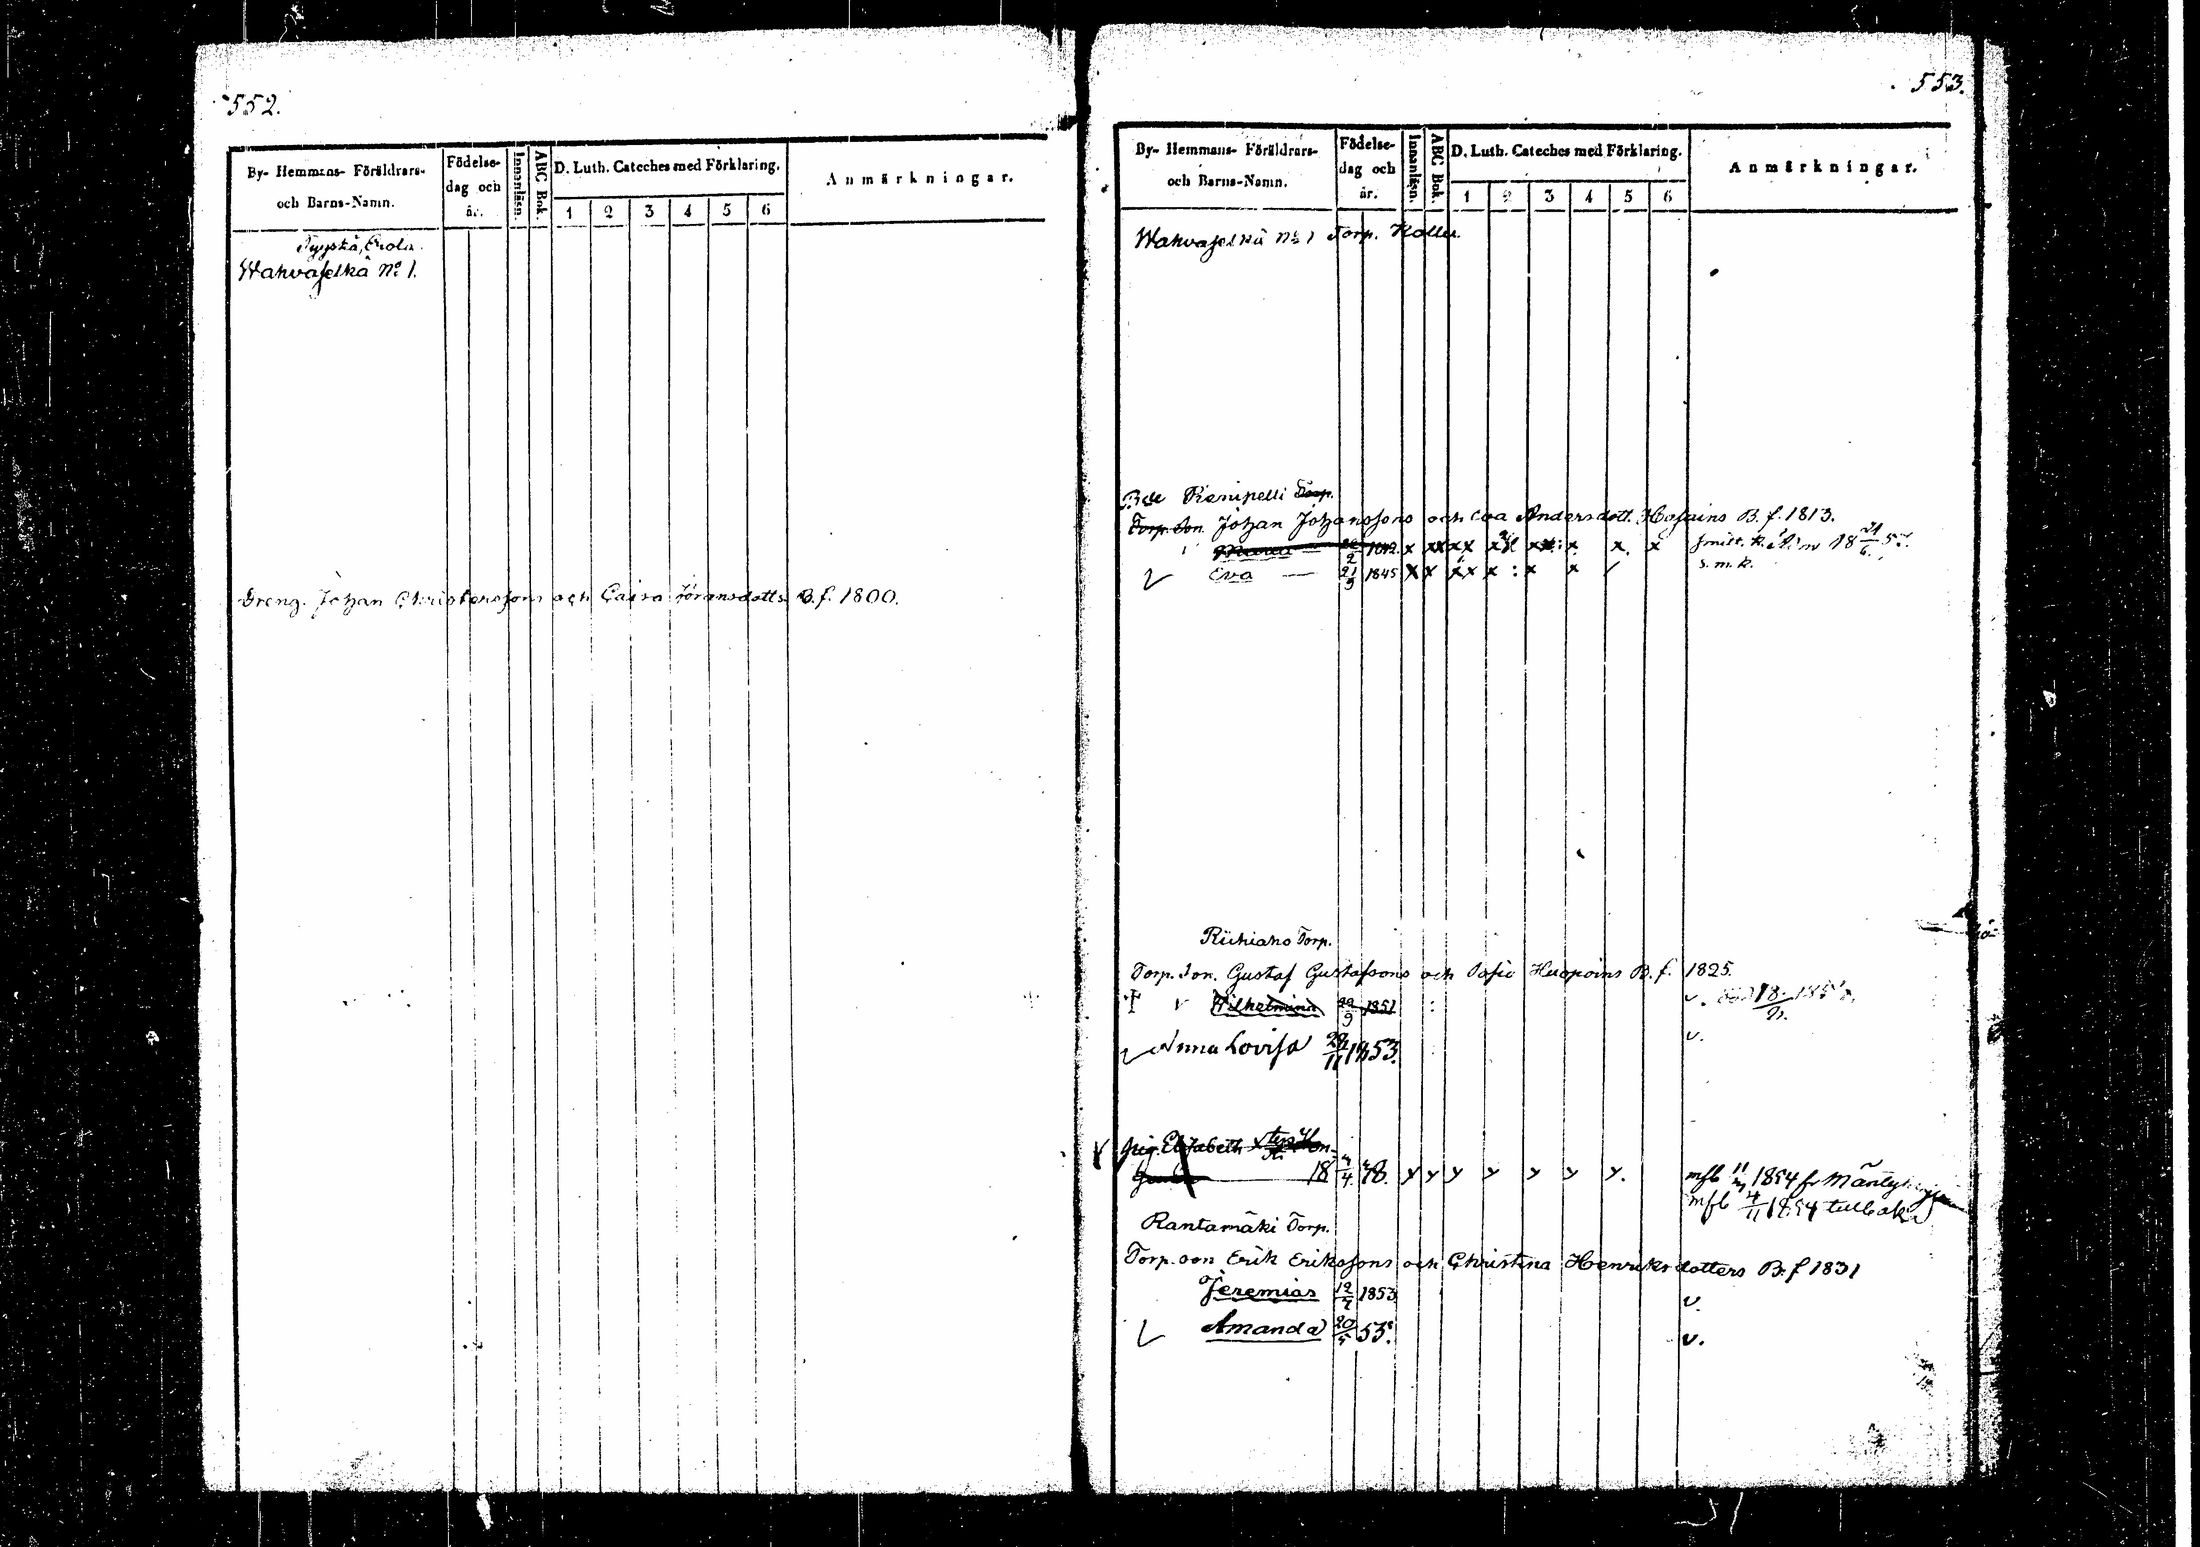 552.
By- Hemmans- Föräldrars- och Barns-Namn.
Födelse- dag och år.
Innanläsn.
ABC Bok.
D. Luth. Cateches med Förklaring.
1 2 3 4 5 6
Anmärkningar.
Wahvaselkä No 1.
Dreng. Johan Christerssons och Caisa Jöransdotts B. f. 1800.
553.
By- Hemmans- Föräldrars- och Barns-Namn.
Födelse- dag och år.
Innanläsn.
ABC Bok.
D. Luth. Cateches med Förklaring.
1 2 3 4 5 6
Anmärkningar.
Wahvaselkä No 1 Torp. Håller.
Torp.
Torp. Son. Johan Johanssons och Eva Andersdott. B. f. 1813.
Maria 1842 x xx xx x x x
Eva — 21/9 1845 x x xx x : x x s. m. k.
Riihiaho Torp.
Torp. Son. Gustaf Gustafsons och B. f. 1825.
Wilhelmina 22/9 1851 : v.
Anna Lovisa 1853. v.
Pig. Elisabeth
18 4/4 48. y y y y y y y. 1854 fr
4/11 1854 tillbaka
Rantamäki Torp.
Torp. son Erik Erikssons och Christina Henriksdotters B. f 1831
Jeremias 1853 v.
Amanda 20/5 55. v.